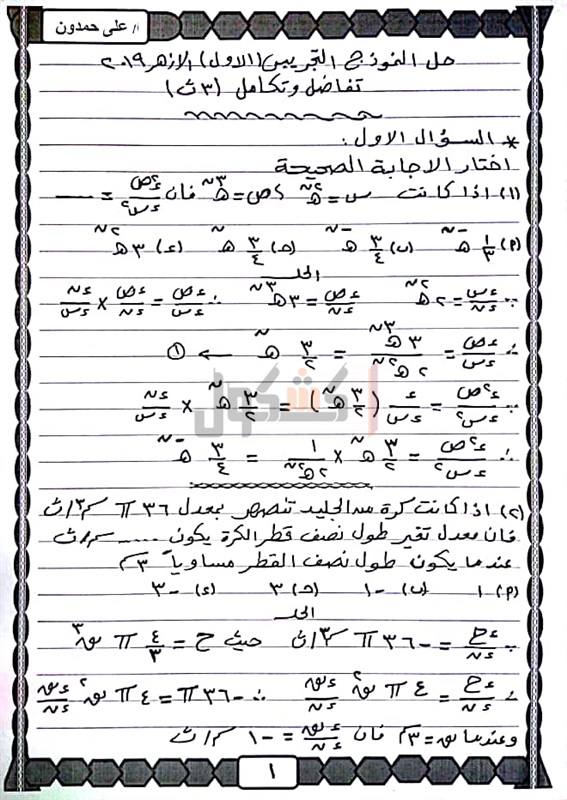 أ/ على حمدون
حل النموذج التجريبى (الاول) الازهر ٢٠١٩
تفاضل وتكامل (٣ث)
* السؤال الاول:
اختار الاجابة الصحيحة
(١) اذا كانت س = هـ^٢ن ، ص = هـ^٣ن فان ء^٢ص/ءس^٢ = ......
(٢) ١/٣ هـ^-ن (ب) ٣/٤ هـ^-ن (حـ) ٣/٤ هـ^ن (ء) ٣ هـ^٢ن
الحل
∵ ءس/ءن = ٢هـ^٢ن ءص/ءن = ٣هـ^٣ن ∴ ءص/ءس = ءص/ءن × ءن/ءس
∴ ءص/ءس = ٣هـ^٣ن/٢هـ^٢ن = ٣/٢ هـ^ن ← ①
∵ ء^٢ص/ءس^٢ = ء/ءس (٣/٢ هـ^ن) = ٣/٢ هـ^ن × ءن/ءس
∴ ء^٢ص/ءس^٢ = ٣/٢ هـ^ن × ١/٢هـ^٢ن = ٣/٤ هـ^-ن
كشكول
(٢) اذا كانت كرة من الجليد تنصهر بمعدل ٣٦ π سم^٣/ث
فان معدل تغير طول نصف قطر الكرة يكون ...... سم/ث
عندما يكون طول نصف القطر مساوياً ٣سم
(٢) ١ (ب) -١ (حـ) ٣ (ء) -٣
الحل
∵ ءح/ءن = -٣٦ π سم^٣/ث حيث ح = ٤/٣ π نق^٣
∴ ءح/ءن = ٤ π نق^٢ ءنق/ءن ∴ -٣٦ π = ٤ π نق^٢ ءنق/ءن
وعندما نق = ٣سم فان ءنق/ءن = -١ سم/ث
١